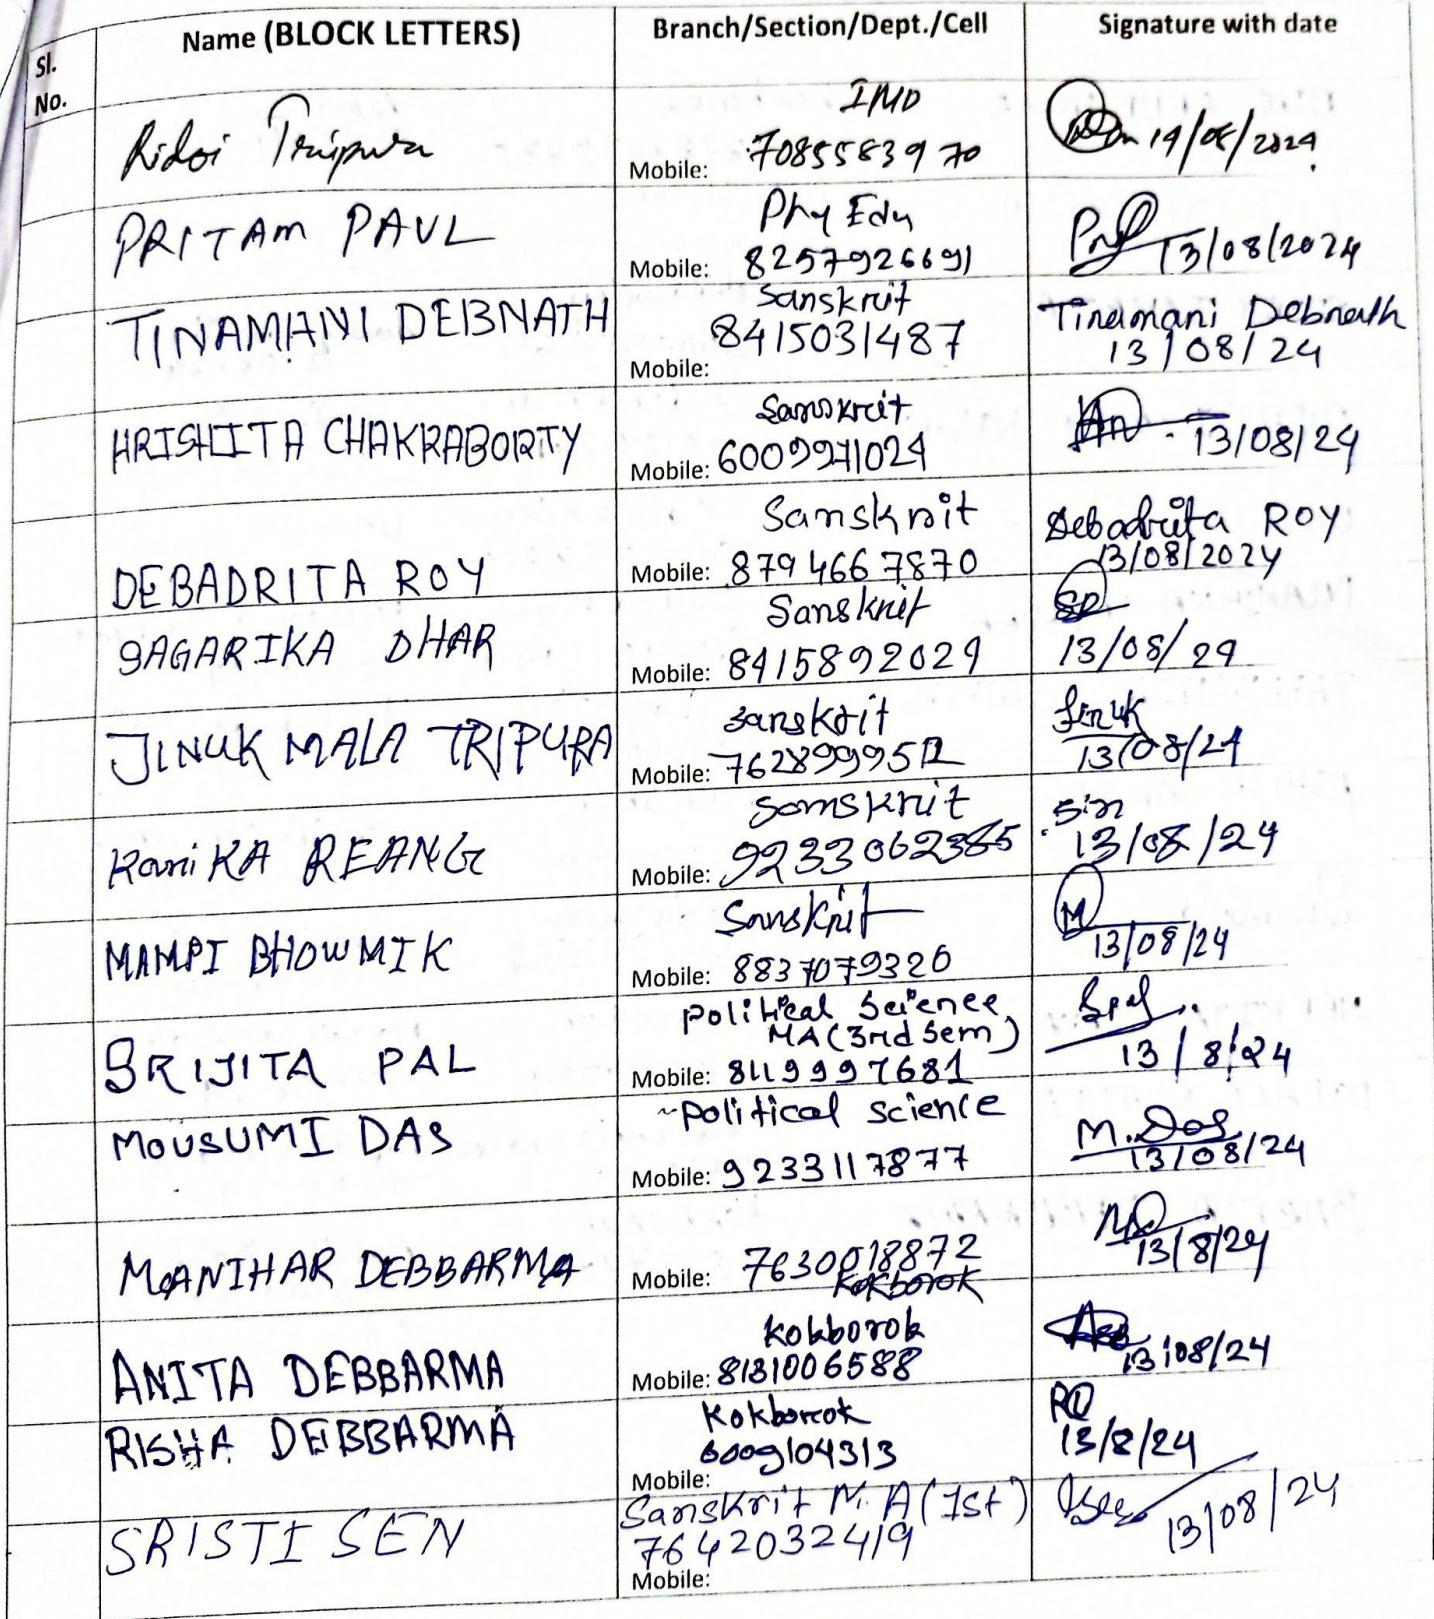 Sl. No.
Name (BLOCK LETTERS)
Branch/Section/Dept./Cell
Signature with date
Ridoi Tripura
IMD
Mobile: 7085583970
14/08/2024
PRITAM PAUL
Phy Edu
Mobile: 8257926691
13/08/2024
TINAMANI DEBNATH
Sanskrit
8415031487
Mobile:
Tinamani Debnath
13/08/24
HRISHITA CHAKRABORTY
Sanskrit
Mobile: 6009971024
13/08/24
DEBADRITA ROY
Sanskrit
Mobile: 8794667870
Debadrita ROY
13/08/2024
SAGARIKA DHAR
Sanskrit
Mobile: 8415892024
SD
13/08/24
JINUK MALA TRIPURA
Sanskrit
Mobile: 7628999512
Jinuk
13/08/24
KaniKA REANG
Sanskrit
Mobile: 9233062385
13/08/24
MAMPI BHOWMIK
Sanskrit
Mobile: 8837079320
M
13/08/24
SRIJITA PAL
Political Science
MA (3rd Sem)
Mobile: 8119997681
13/8/24
MOUSUMI DAS
Political science
Mobile: 9233117877
M. Das
13/08/24
MANIHAR DEBBARMA
Mobile: 7630018872
Kokborok
MD
13/8/24
ANITA DEBBARMA
Kokborok
Mobile: 8131006588
13/08/24
RISHA DEBBARMA
Kokborok
6009104313
Mobile:
RD
13/8/24
SRISTI SEN
Sanskrit M.A (1st)
7642032419
Mobile:
13/08/24